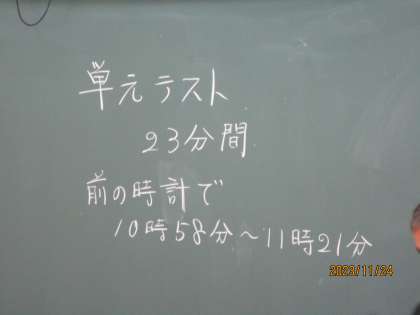 単元テスト
23分間
前の時計で
10時58分～11時21分
2023/11/24